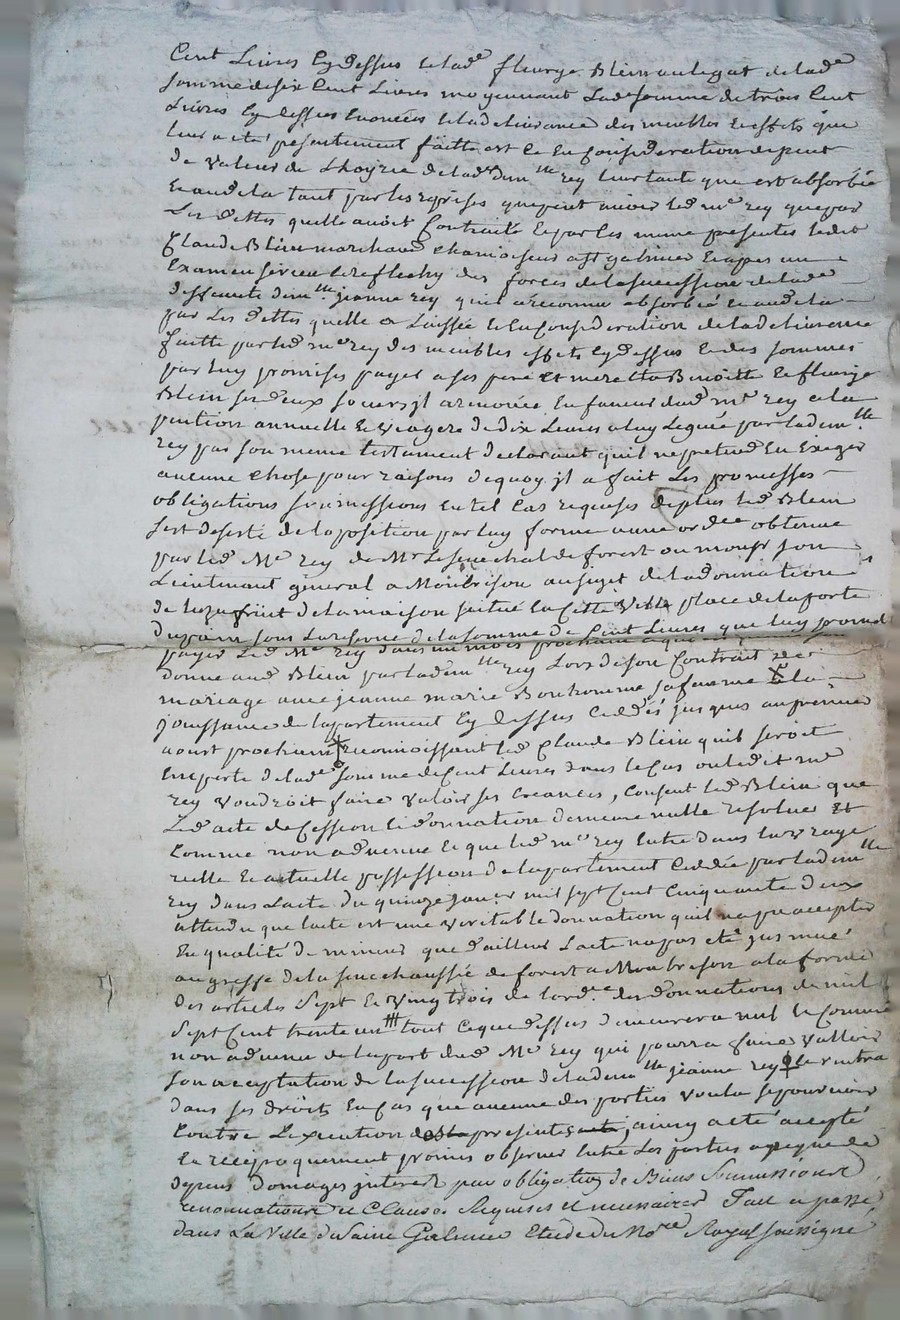 Cent Livres Cy dessus et lad.e fleurye Blein au legat de lad.e
somme de six Cent Livres moyennant lad.e somme de trois Cent
Livres Cy dessus Enoncées et la delivrance des meubles et effets que
leur a eté présentement faitte et ce En Consideration du peu
de valeur de L'hoyrie de lad.e dem.lle rey leur tante que est absorbée
Et au dela tant par les reprises que peut avoir led. m.e rey que par
Les dettes quelle avoit Contracté Et par les meme presentes ledit
Claude Blein marchand chamoiseur a S.t galmier Et apres un
Examen serieux et reflechy des forces de la succession de lad.e
deffunte dem.lle jeanne rey quil a reconnue absorbée et au dela
par Les dettes quelle a Laissée et En Consideration de la delivrance
faitte par led. m.e rey des meubles effets Cy dessus et des sommes
par luy promises payer a ses pere et mere et a Benoitte et fleurye
Blein ses deux soeurs, il a renoncé En faveur dud. m.e rey a la
pention annuelle et viagere de dix Livres a luy Leguée par lad. dem.lle
rey par son meme testament declarant quil ne pretend En Exiger
aucune chose pour raisons de quoy il a fait Les promesses
obligations soumissions En tel Cas requises de plus led. Blein
sest desisté de l'oposition par luy formé a une ord.ce obtenue
par led. M.e rey de M.r Le senechal de forest ou monsr son
Lieutenant general a Monbrison au sujet de la donnation
de luzufruit de la maison scitué En Cette ville place de la porte
dupam sous La reserve de la somme de Cent Livres que luy promet
payer Led. M.e rey dans un mois prochain
donné aud. Blein par lad. dem.lle rey Lors de son Contrait de
mariage avec jeanne marie Bonhomme sa femme et la
jouissance de lapartement Cy dessus Ceddé jusques au premier
aoust prochain reconnoissant led. Claude Blein quil seroit
En perte de lad.e somme de Cent Livres dans le Cas ou ledit m.e
rey voudroit faire valoir ses creances, Consent led. Blein que
Led. acte de Cession et donnation demeure nulle resolue et
Comme non advenue et que led. m.e rey Entre dans la vraye
reelle et actuelle possession de lapartement Ceddée par lad. dem.lle
rey dans Lacte du quinze janvier mil sept Cent Cinquante deux
attendu que lacte est une veritable donnation quil na pu accepter
En qualité de mineur que dailleurs Lacte na pas eté jnsinué
au greffe de la senechaussée de forest a Monbrison a la forme
des articles Sept et vingt trois de lord.ce des donnations de mil
Sept Cent trente un tout ce que dessus demeurera nul et Comme
non advenu de la part dud. M.e rey qui pourra faire valloir
son acceptation de la succession de lad. dem.lle jeanne rey et rentrer
dans ses droits En Cas que aucune des parties voulu se pourvoir
Contre L'exeution des presentes, ainsy a eté accepté
Et reciproquement promis observer Entre Les parties a peyne de
depens domages jnterets par obligation de Biens Soumissions
renonciations et Clauses Requises et necessaires Fait et passé
dans La Ville de Saint Galmier Etude du No.re Royal soussigné